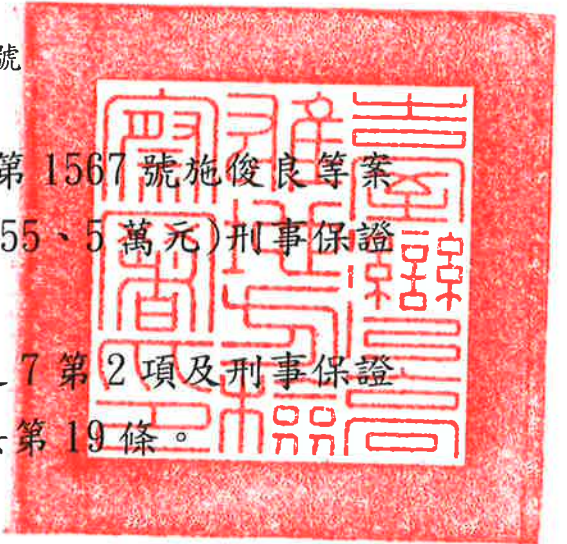 號
第 1567 號施俊良等案
55、5 萬元)刑事保證
7 第 2 項及刑事保證
第 19 條。